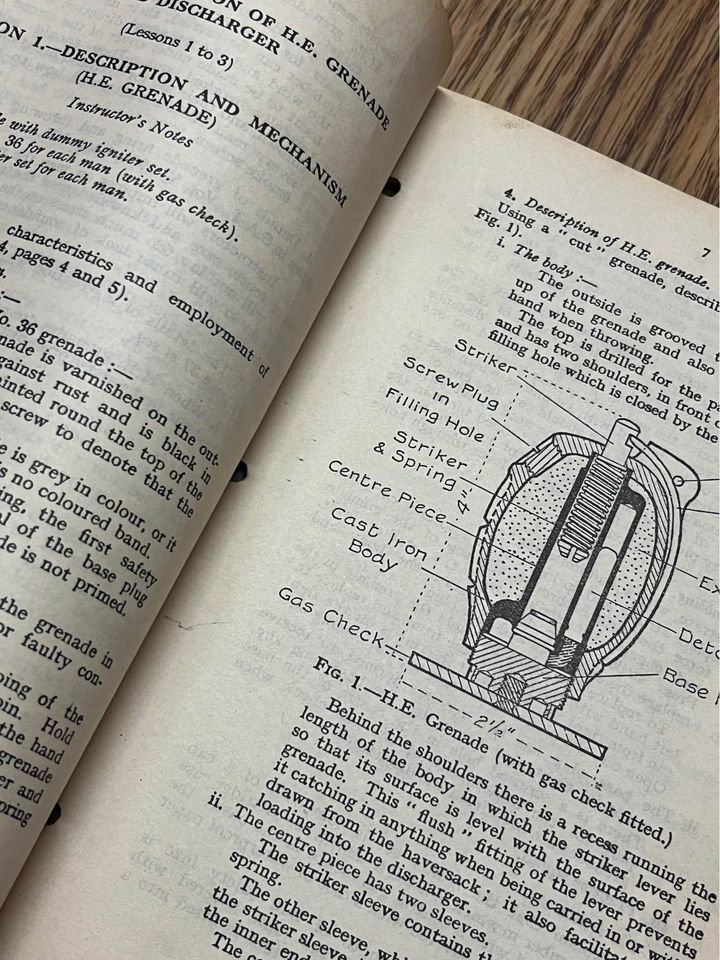 ON OF H.E. GRENADE
DISCHARGER
(Lessons 1 to 3)
ON 1.—DESCRIPTION AND MECHANISM
(H.E. GRENADE)
Instructor's Notes
with dummy igniter set.
36 for each man (with gas check).
set for each man.
characteristics and employment of
4, pages 4 and 5).
:—
No. 36 grenade :—
is varnished on the out-
against rust and is black in
painted round the top of the
screw to denote that the
is grey in colour, or it
is no coloured band.
the first safety
of the base plug
is not primed.
the grenade in
or faulty con-
of the
pin. Hold
the hand
grenade
and
7
4. Description of H.E. grenade.
Using a " cut " grenade, describ
Fig. 1).
i. The body :—
The outside is grooved t
up of the grenade and also
hand when throwing.
The top is drilled for the p
and has two shoulders, in front
filling hole which is closed by the
Striker
Screw Plug
in
Filling Hole
Striker
& Spring
4"
Centre Piece
Cast Iron
Body
Gas Check
Ex
Deto
Base
2½"
FIG. 1.—H.E. Grenade (with gas check fitted.)
Behind the shoulders there is a recess running the
length of the body in which the striker lever lies
so that its surface is level with the surface of the
grenade. This " flush " fitting of the lever prevents
it catching in anything when being carried in or with
drawn from the haversack ; it also facilitat
loading into the discharger.
ii. The centre piece has two sleeves.
The striker sleeve contains the
spring.
The other sleeve, whi
the striker sleeve
the inner end
The